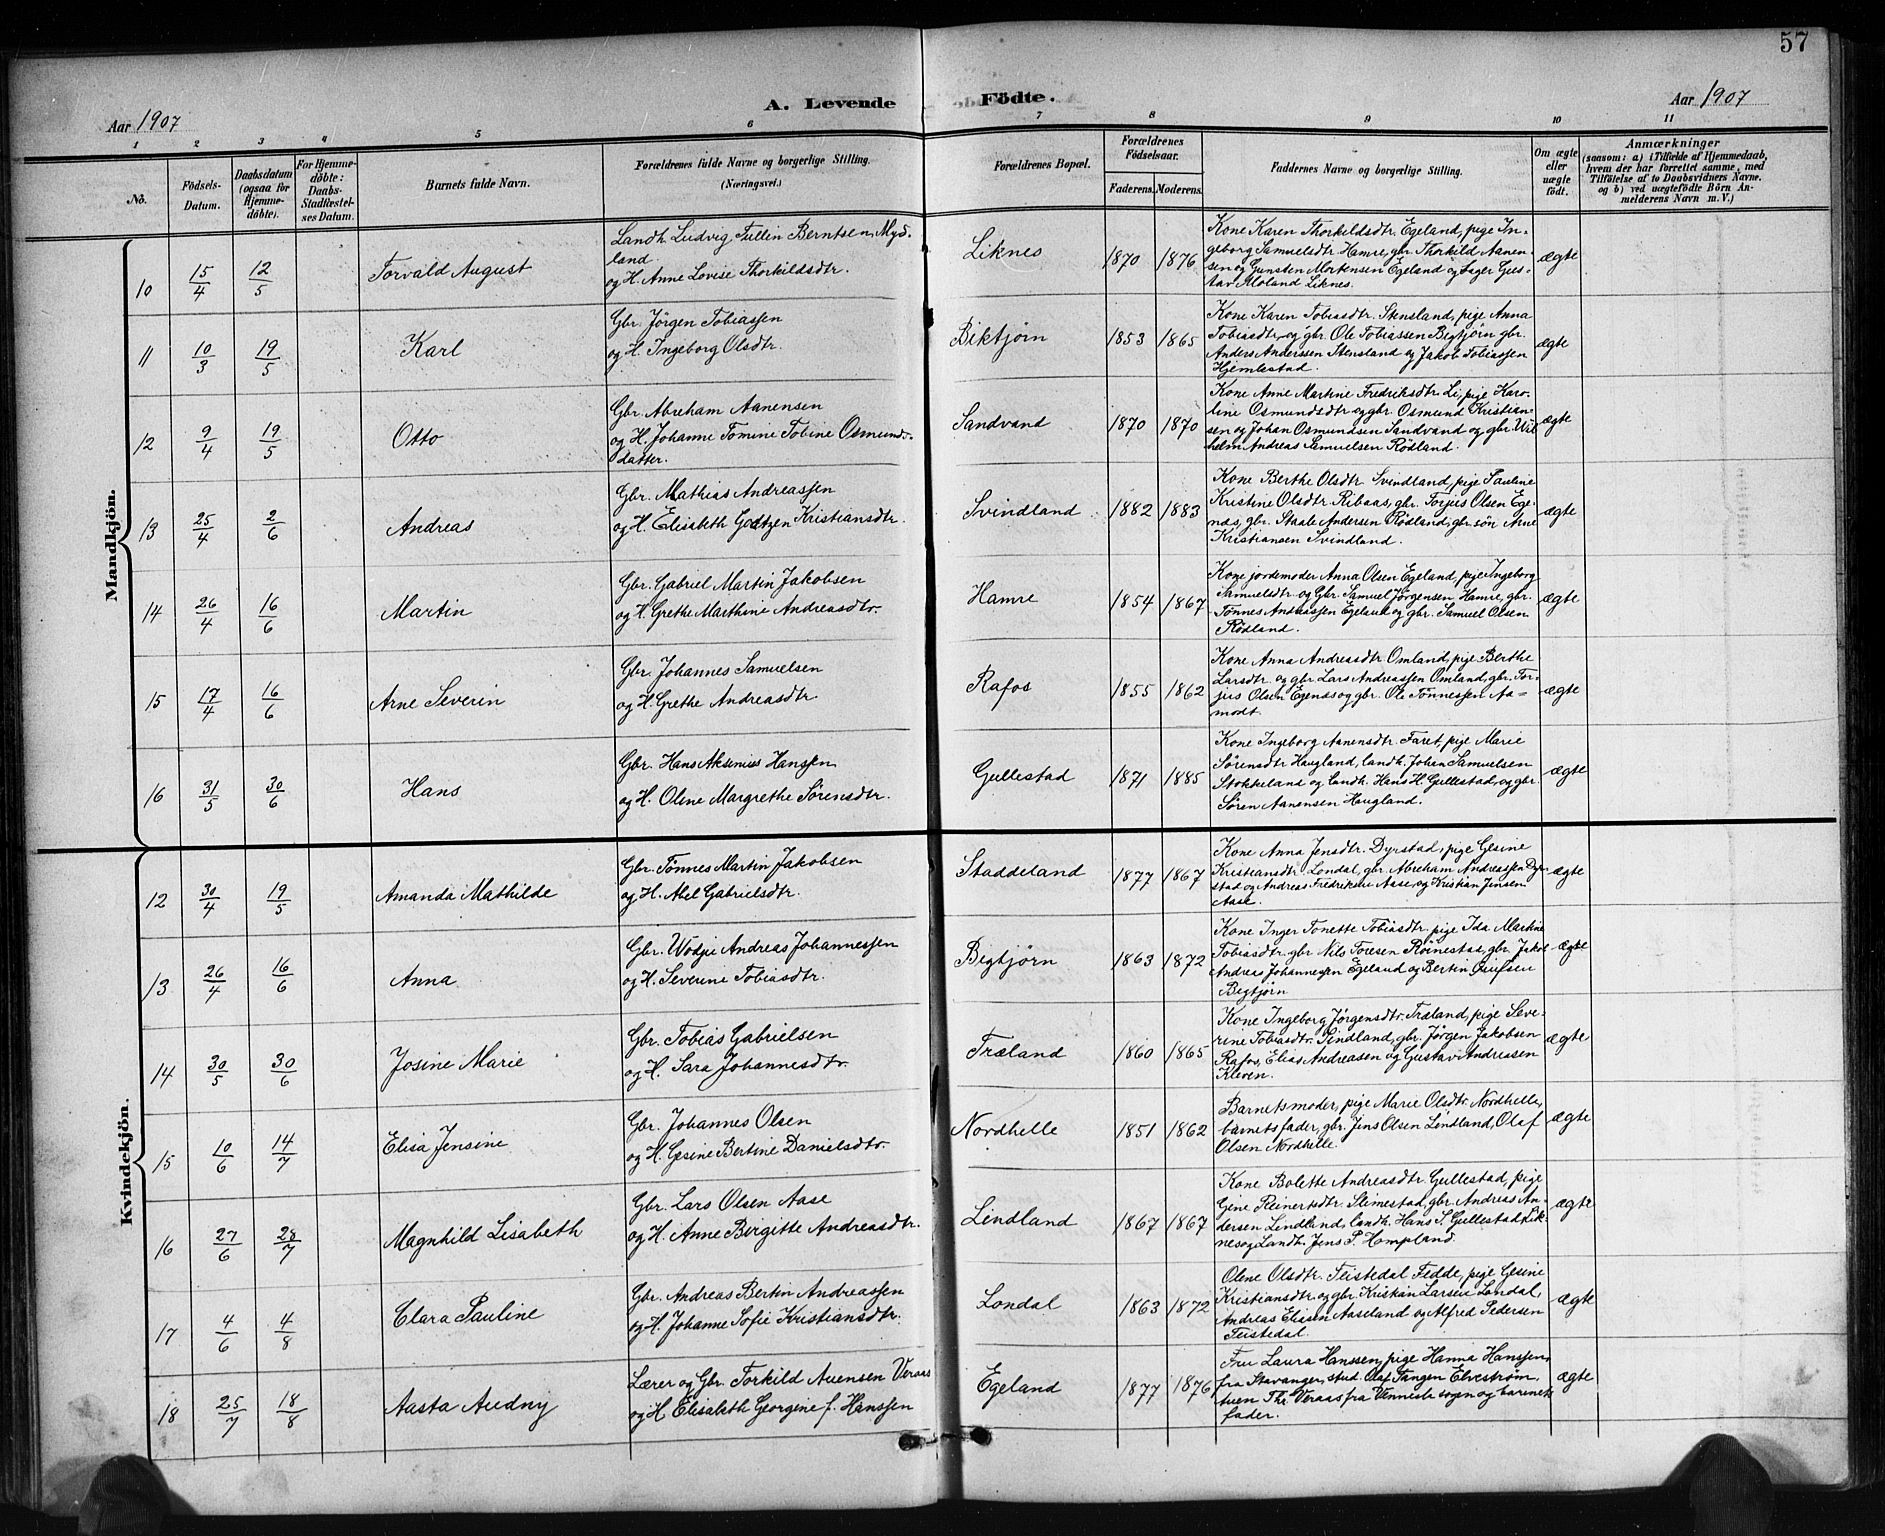 57
Aar 1907
A. Levende Födte.
Aar 1907
1 2 3 4 5 6 7 8 9 10 11
No.
Födsels-Datum.
Daabsdatum (ogsaa for Hjemmedöbte).
For Hjemmedöbte: Daabs-Stadfæstelses Datum.
Barnets fulde Navn.
Forældrenes fulde Navne og borgerlige Stilling. (Næringsvei.)
Forældrenes Bopæl.
Forældrenes Födselsaar.
Faderens. Moderens.
Faddernes Navne og borgerlige Stilling.
Om ægte eller uægte födt.
Anmærkninger
(saasom: a) i Tilfælde af Hjemmedaab, hvem der har forrettet samme, med Tilföielse af to Daabsvidners Navne, og b) ved uægtefödte Börn Anmelderens Navn m. V.)
Mandkjön.
10 15/4 12/5 Torvald August
Landh. Ludvig Tullin Berntsen Mydland
og H. Anne Lovise Thorkildsdtr.
Liknes 1870 1876
Kone Karen Thorkildsdtr. Egeland, pige In-
geborg Samuelsdtr. Hamre, gbr. Thorkild Aanen-
sen og Gunsten Mortensen Egeland og Lager Gus-
tav Moland Liknes.
ægte
11 10/3 19/5 Karl
Gbr. Jörgen Tobiassen
og H. Ingeborg Olsdtr.
Biktjørn 1853 1865
Kone Karen Tobiasdtr. Stensland, pige Anna
Tobiasdtr. og gbr. Ole Tobiassen Bigtjørn gbr.
Anders Anderssen Stensland og Jakob Tobiassen
Hjemlestad.
ægte
12 9/4 19/5 Otto
Gbr. Abreham Aanensen
og H. Johanne Tomine Tobine Osmunds-
datter.
Sandvand 1870 1870
Kone Anne Martine Fredriksdtr. Li, pige Karo-
line Osmundsdtr og gbr Osmund Kristian-
sen og Johan Osmundsen Sandvand og gbr. Wil
helm Andreas Samuelsen Rødland.
ægte
13 25/4 2/6 Andreas
Gbr. Mathias Andreassen
og H. Elisabeth Goetzen Kristiansdtr.
Svindland 1882 1883
Kone Berthe Olsdtr Svindland, pige Pauline
Kristine Olsdtr. Ribaas, gbr. Torjus Olsen Ege-
næs, gbr. Staale Andersen Rødland, gbr.søn Arne
Kristiansen Svindland.
ægte
14 26/4 16/6 Martin
Gbr. Gabriel Martin Jakobsen
og H. Grethe Marthine Andreasdtr.
Hamre 1854 1867
Kone jordemoder Anna Olsen Egeland, pige Ingeborg
Samuelsdtr og Gbr. Samuel Jørgensen Hamre, gbr.
Tønnes Andreassen Egeland og gbr. Samuel Olsen
Rødland.
ægte
15 17/4 16/6 Arne Severin
Gbr. Johannes Samuelsen
og H. Grethe Andreasdtr
Rafos 1855 1862
Kone Anna Andreasdtr. Omland, pige Berthe
Larsdtr. og gbr Lars Andreassen Omland, gbr. Tor-
jus Olsen Egenæs og gbr. Ole Tønnessen Aa=
modt.
ægte
16 31/5 30/6 Hans
Gbr. Hans Aksenius Hanssen
og H. Oline Margrethe Sørensdtr.
Gullestad 1871 1885
Kone Ingeborg Aanensdtr. Faret, pige Marie
Sørensdtr Haugland, landh. Johan Samuelsen
Stokkeland og landh. Hans H. Gullestad, og gbr
Søren Aanensen Haugland.
ægte
Kvindekjön.
12 30/4 19/5 Amanda Mathilde
Gbr. Tønnes Martin Jakobsen
og H. Abel Gabrielsdtr.
Staddeland 1877 1867
Kone Anna Jensdtr. Dyrstad, pige Gesine
Kristiansdtr. Londal, gbr Abreham Andreassen Dyr-
stad og Andreas Fredriksen Aase, og Kristian Jensen
Aase.
ægte
13 26/4 16/6 Anna
Gbr. Wodje Andreas Johannessen
og H. Severine Tobiasdtr.
Bigtjørn 1863 1872
Kone Inger Tonette Tobiasdtr. pige Ida Martine
Tobiasdtr. gbr Nils Toresen Røinestad, gbr. Jakob
Andreas Johannessen Egeland og Bertin
Bigtjørn
ægte
14 30/5 30/6 Josine Marie
Gbr. Tobias Gabrielsen
og H. Sara Johannesdtr.
Træland 1860 1865
Kone Ingeborg Jørgensdtr. Træland, pige Seve-
rine Tobiasdtr. Sindland, gbr. Jørgen Jakobsen
Rafos, Elias Andreasen og Gustav Andreasen
Kleven.
ægte
15 10/6 14/7 Elisa Jensine
Gbr. Johannes Olsen
og H. Gesine Bertine Danielsdtr.
Nordhelle 1851 1862
Barnets moder, pige Marie Olsdtr. Nordhelle,
barnets fader, gbr. Jens Olsen Lindland, Olaf
Olsen Nordhelle.
ægte
16 27/6 28/7 Magnhild Lisabeth
Gbr. Lars Olsen Aase
og H. Anne Birgitte Andreasdtr.
Lindland 1867 1867
Kone Bolette Andreasdtr. Gullestad, pige
Gine Reinertsdtr. Slimestad, gbr. Andreas An-
dersen Lindland, landh. Hans S. Gullestad Lik-
nes og Landh. Jens P. Hompland.
ægte
17 4/6 4/8 Clara Pauline
Gbr. Andreas Bertin Andreassen
og H. Johanne Sofie Kristiansdtr.
Londal 1863 1872
Olene Olsdtr. Feistedal Fedde, pige Gesine
Kristiansdtr og gbr Kristian Larsen Londal,
Andreas Elisen Aaseland og Alfred Pedersen
Feistedal.
ægte
18 25/7 18/8 Aasta Audny
Lærer og Gbr. Torkild Auensen Veraas
og H Elisabeth Georgene f. Hanssen
Egeland 1877 1876
Fru Laura Hanssen, pige Hanna Hanssen,
fra Stavanger, stud Olaf Tangen Elvestrøm,
Auen Th. Veraas fra Vennesla sogn og barnets
fader.
ægte